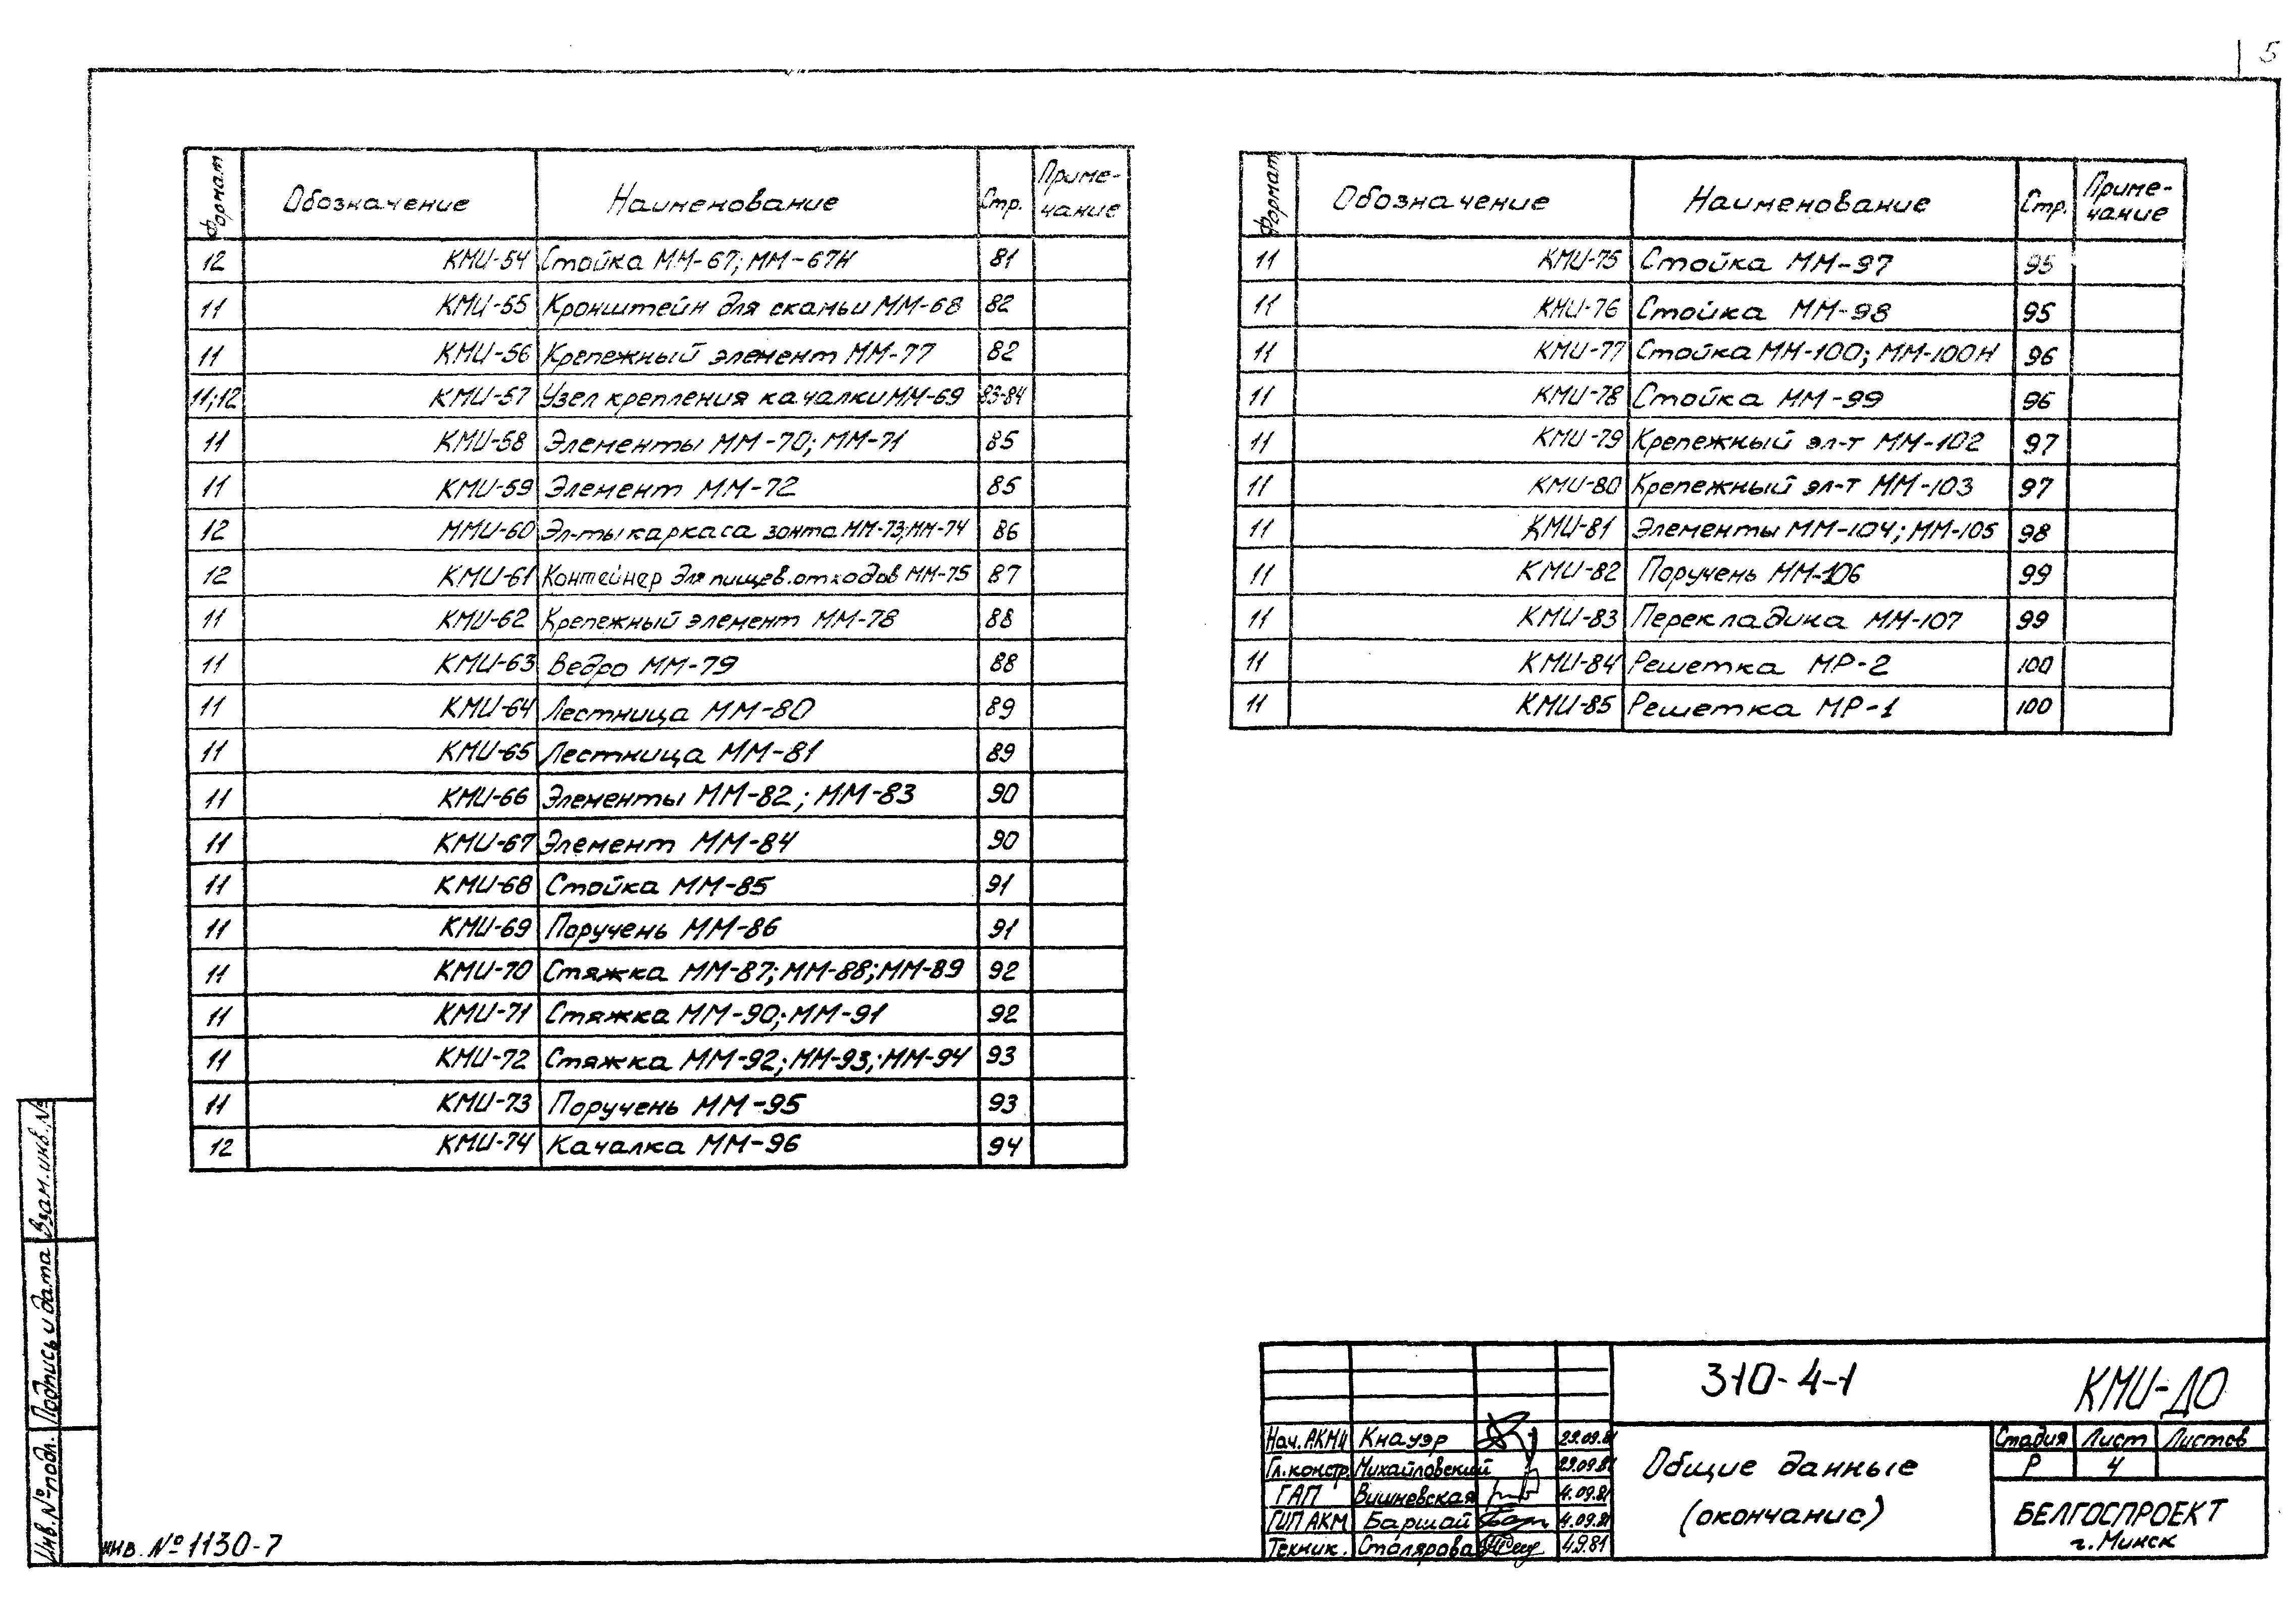 5
Формат Обозначение Наименование Стр. Приме-
чание
12 КМИ-54 Стойка ММ-67; ММ-67Н 81
11 КМИ-55 Кронштейн для скамьи ММ-68 82
11 КМИ-56 Крепежный элемент ММ-77 82
11;12 КМИ-57 Узел крепления качалки ММ-69 83-84
11 КМИ-58 Элементы ММ-70; ММ-71 85
11 КМИ-59 Элемент ММ-72 85
12 ММИ-60 Эл-ты каркаса зонта ММ-73; ММ-74 86
12 КМИ-61 Контейнер для пищев. отходов ММ-75 87
11 КМИ-62 Крепежный элемент ММ-78 88
11 КМИ-63 Ведро ММ-79 88
11 КМИ-64 Лестница ММ-80 89
11 КМИ-65 Лестница ММ-81 89
11 КМИ-66 Элементы ММ-82; ММ-83 90
11 КМИ-67 Элемент ММ-84 90
11 КМИ-68 Стойка ММ-85 91
11 КМИ-69 Поручень ММ-86 91
11 КМИ-70 Стяжка ММ-87; ММ-88; ММ-89 92
11 КМИ-71 Стяжка ММ-90; ММ-91 92
11 КМИ-72 Стяжка ММ-92; ММ-93; ММ-94 93
11 КМИ-73 Поручень ММ-95 93
12 КМИ-74 Качалка ММ-96 94
Формат Обозначение Наименование Стр. Приме-
чание
11 КМИ-75 Стойка ММ-97 95
11 КМИ-76 Стойка ММ-98 95
11 КМИ-77 Стойка ММ-100; ММ-100Н 96
11 КМИ-78 Стойка ММ-99 96
11 КМИ-79 Крепежный эл-т ММ-102 97
11 КМИ-80 Крепежный эл-т ММ-103 97
11 КМИ-81 Элементы ММ-104; ММ-105 98
11 КМИ-82 Поручень ММ-106 99
11 КМИ-83 Перекладина ММ-107 99
11 КМИ-84 Решетка МР-2 100
11 КМИ-85 Решетка МР-1 100
Взам. инв. №
Подпись и дата
Инв. № подл.
инв. № 1130-7
310-4-1 КМИ-ДО
Нач. АКМИ Кнауэр 29.09.81
Гл. констр. Михайловский 29.09.81
ГАП Вишневская 4.09.81
ГИП АКМ Баршай 4.09.81
Техник. Столярова 4.9.81
Общие данные
(окончание)
Стадия Лист Листов
Р 4
БЕЛГОСПРОЕКТ
г. Минск